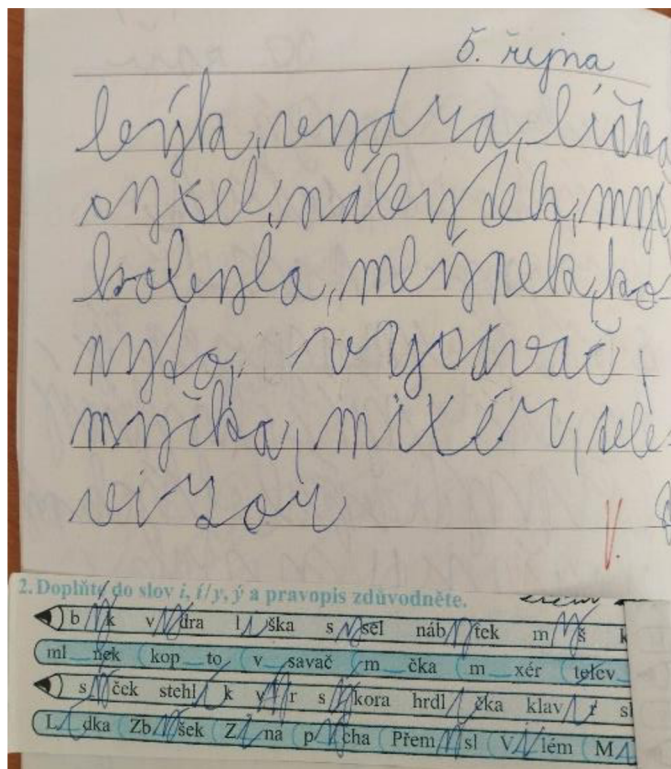 5. října
býk, vydra, liška
sysel, nábytek, myš
kobyla, mlýnek, ko
nyto, vysavač,
myčka, mixér, tele-
vizor
V.
2. Doplňte do slov i, í/y, ý a pravopis zdůvodněte.
býk vydra liška sysel nábytek myš k
ml_nek kop_to v_savač m_čka m_xér telev
sýček stehlík výr sýkora hrdlička klavír sl
Lidka Zbyšek Zina pýcha Přemysl Vilém Mi